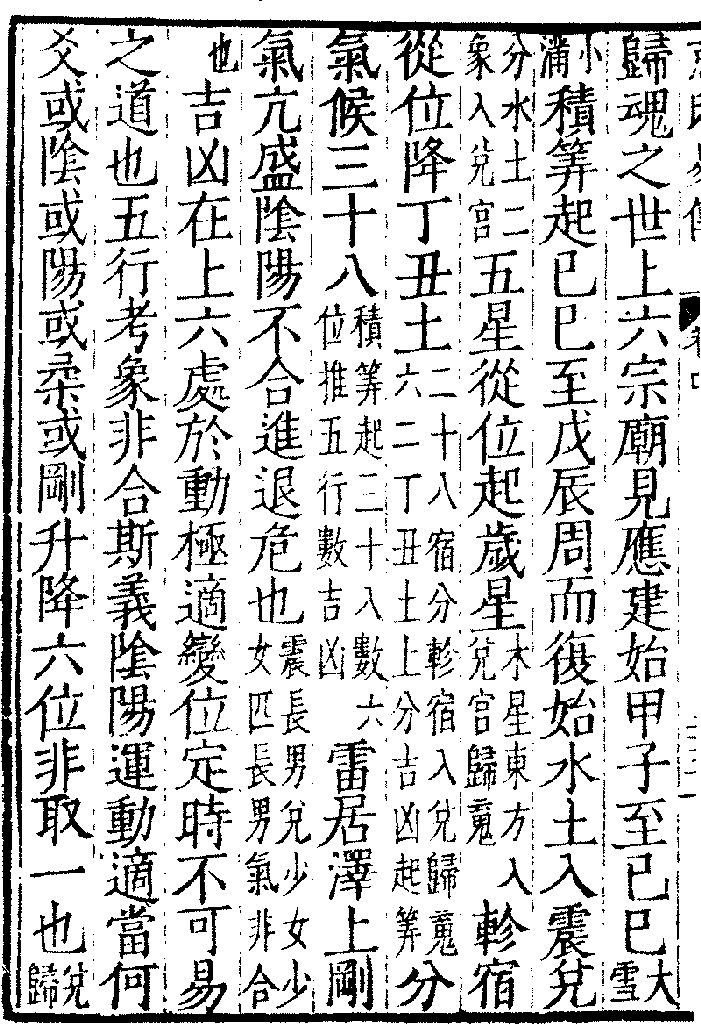 歸魂之世上六宗廟見應建始甲子至己巳大雪
小滿積筭起己巳至戊辰周而復始水土入震兌
分水土二象入兌宮五星從位起歲星木星東方入兌宮歸䰟軫宿
從位降丁丑土二十八宿分軫宿入兌歸䰟六二丁丑土上分吉凶起筭分
氣候三十八積筭起三十八數六位推五行數吉凶雷居澤上剛
氣亢盛陰陽不合進退危也震長男兌少女少女匹長男氣非合
也吉凶在上六處於動極適變位定時不可易
之道也五行考象非合斯義陰陽運動適當何
爻或陰或陽或柔或剛升降六位非取一也兌歸